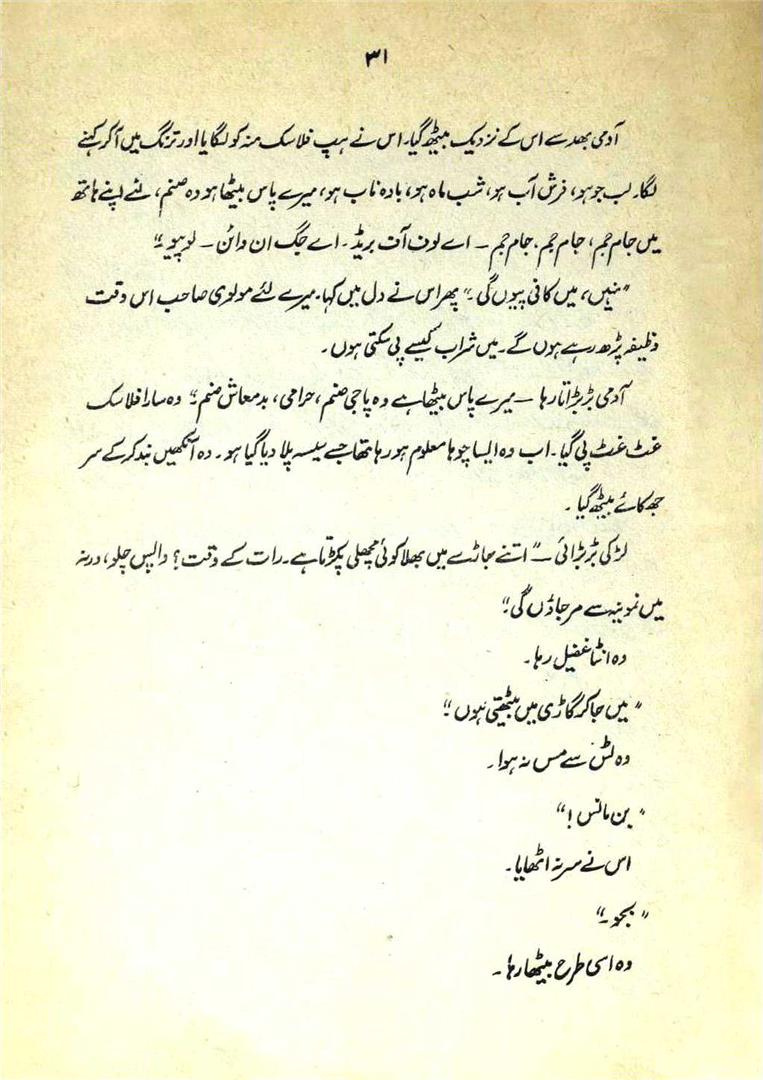 ۳۱
آدمی بھد سے اس کے نزدیک بیٹھ گیا۔ اس نے ہپ فلاسک منہ کو لگایا اور ترنگ میں آکر کہنے
لگا۔ لب جو ہو، فرش آب ہو، شب ماہ ہو، بادہ ناب ہو، میرے پاس بیٹھا ہو وہ صنم، لئے اپنے ہاتھ
میں جام جم، جام جم، جام جم — اے لوف آف بریڈ۔ اے جگ ان وائن — لو پیو۔"
"نہیں، میں کافی پیوں گی۔" پھر اس نے دل میں کہا۔ میرے لئے مولوی صاحب اس وقت
وظیفہ پڑھ رہے ہوں گے۔ میں شراب کیسے پی سکتی ہوں۔
آدمی بڑبڑاتا رہا — میرے پاس بیٹھا ہے وہ پاجی صنم، حرامی، بدمعاش صنم۔" وہ سارا فلاسک
غٹ غٹ پی گیا۔ اب وہ ایسا چوہا معلوم ہو رہا تھا جسے سیسہ پلا دیا گیا ہو۔ وہ آنکھیں بند کر کے سر
جھکائے بیٹھ گیا۔
لڑکی بڑبڑائی — "اتنے جاڑے میں بھلا کوئی مچھلی پکڑتا ہے۔ رات کے وقت؟ واپس چلو، ورنہ
میں نمونیہ سے مر جاؤں گی۔"
وہ انٹا غفیل رہا۔
"میں جا کر گاڑی میں بیٹھتی ہوں۔"
وہ ٹس سے مس نہ ہوا۔
"بن مانس!"
اس نے سر نہ اٹھایا۔
"بجو۔"
وہ اسی طرح بیٹھا رہا۔